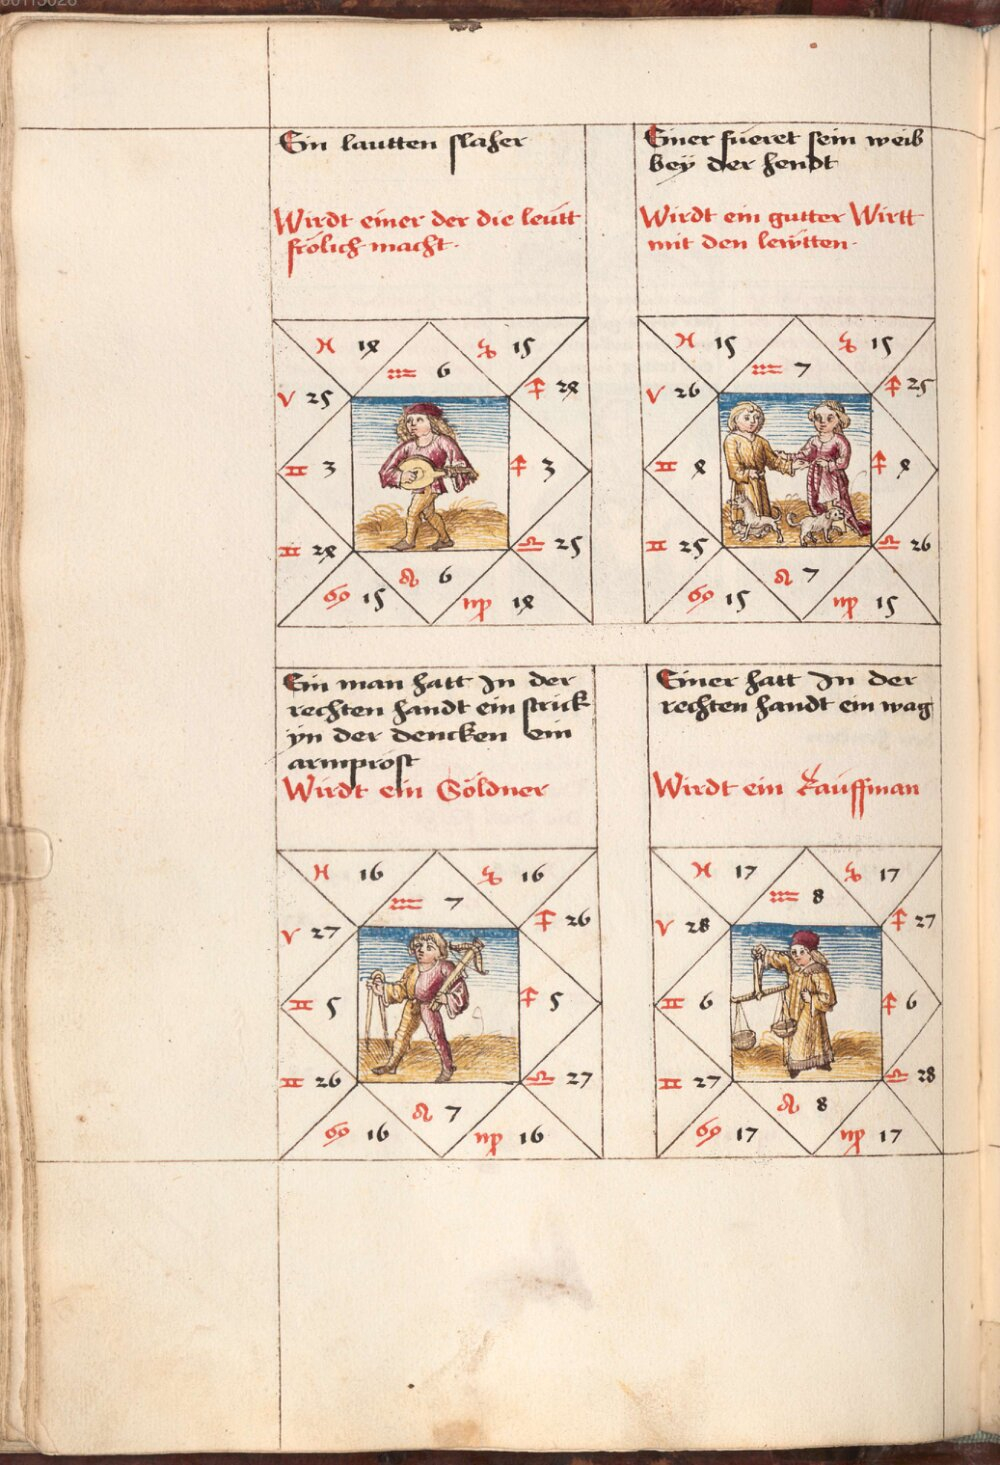 Ein lautten slaher
Wirdt einer der die leütt
frölich macht.
♓ 18
♑ 15
♒ 6
♈ 25
♐ 28
♊ 3
♐ 3
♊ 28
♎ 25
♌ 6
♋ 15
♍ 18
Einer füeret sein weib
beÿ der hendt
Wirdt ein gutter Wirtt
mit den lewtten.
♓ 15
♑ 15
♒ 7
♈ 26
♐ 25
♊ 8
♐ 8
♊ 25
♎ 26
♌ 7
♋ 15
♍ 15
Ein man hatt In der
rechten handt ein strick
ÿn der dencken ein
armprost
Wirdt ein Söldner
♓ 16
♑ 16
♒ 7
♈ 27
♐ 26
♊ 5
♐ 5
♊ 26
♎ 27
♌ 7
♋ 16
♍ 16
Einer hatt In der
rechten handt ein wag
Wirdt ein kauffman
♓ 17
♑ 17
♒ 8
♈ 28
♐ 27
♊ 6
♐ 6
♊ 27
♎ 28
♌ 8
♋ 17
♍ 17